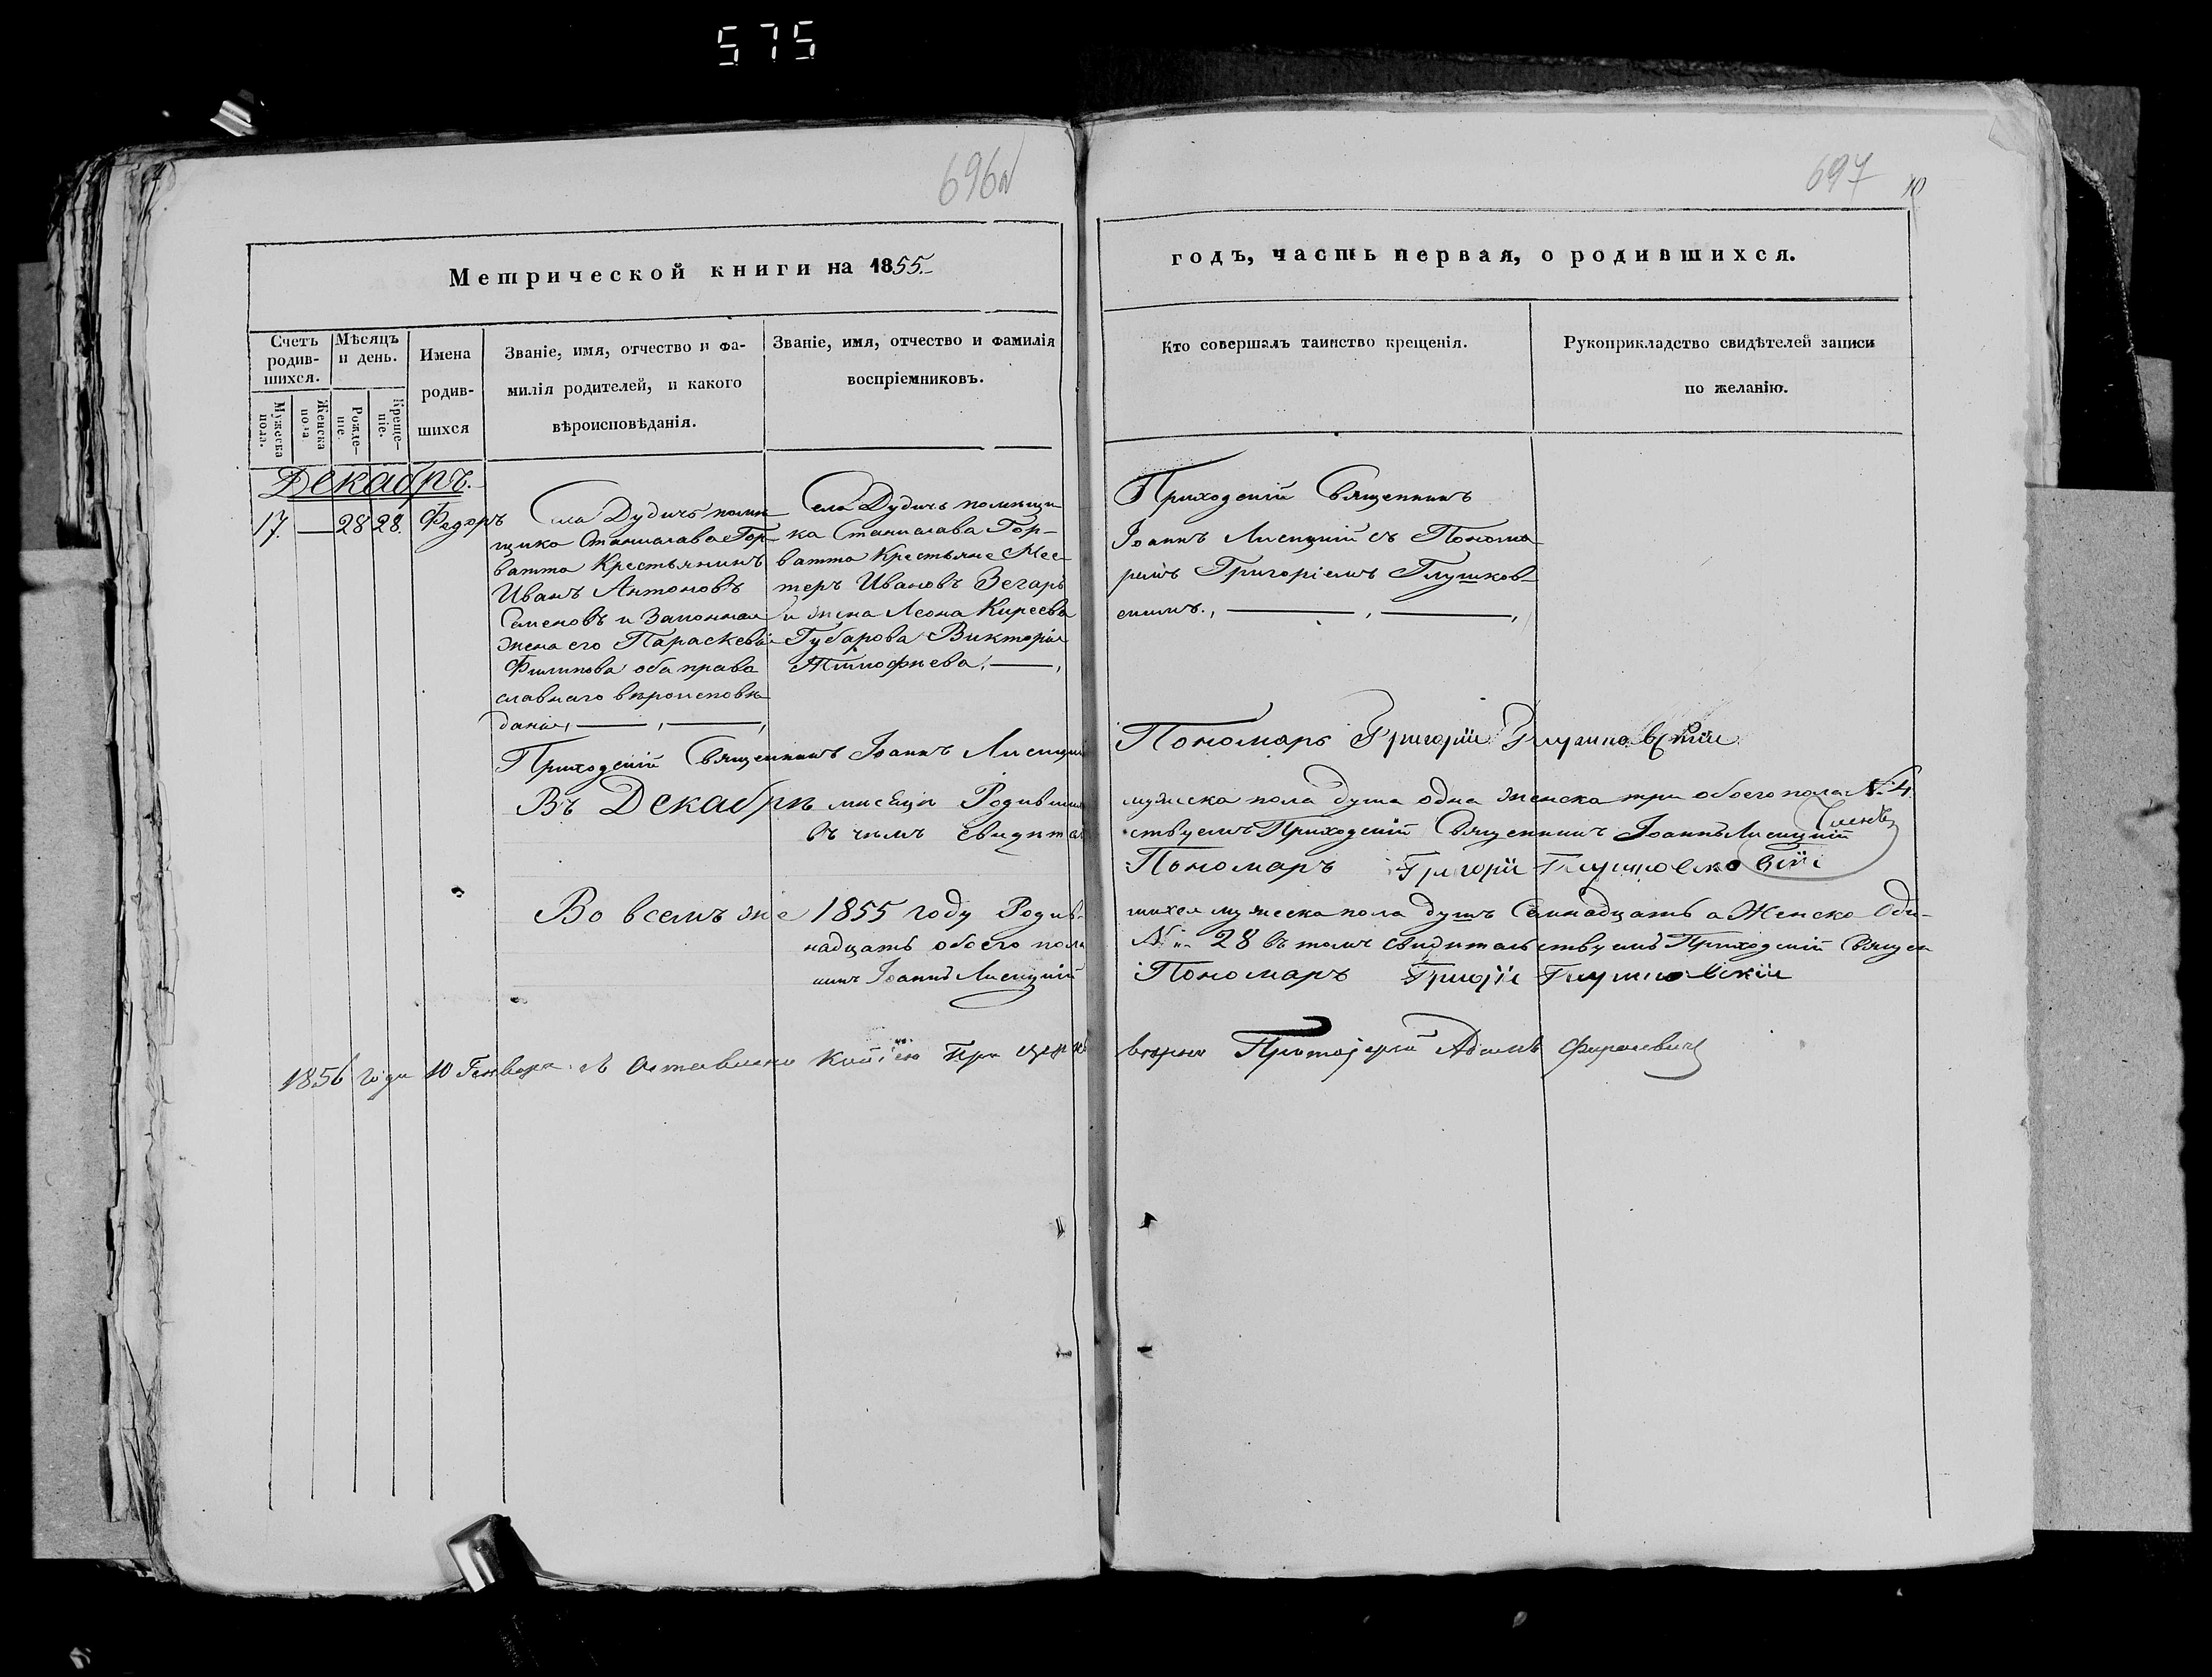 575
696об
697
10
Метрической книги на 1855.
годъ, часть первая, о родившихся.
Счетъ родив-шихся.
Мужеска пола.
Женска пола
Мѣсяцъ и день.
Рожде-ніе.
Креще-ніе.
Имена
родив-
шихся
Званіе, имя, отчество и фа-
милія родителей, и какого
вѣроисповѣданія.
Званіе, имя, отчество и фамилія
воспріемниковъ.
Кто совершалъ таинство крещенія.
Рукоприкладство свидѣтелей записи
по желанію.
Декабръ.
17. — 28 28. Федоръ
Села Дудичъ помѣ
щика Станислава Гор-
ватта Крестьянинъ
Иванъ Антоновъ
Семеновъ и Законная
жена его Параскева
Филипова оба право
славнаго вѣроисповѣ
данія,
Села Дудичъ помѣщи
ка Станислава Гор-
ватта Крестьяне Нес
теръ Ивановъ Зегаръ
и жена Леона Киреева
Губарова Викторія
Тимофѣева.
Приходскій Священникъ
Іоаннъ Лисицкій съ Понома
ремъ Григоріемъ Глушков-
скимъ.,
Приходскій Священникъ Іоаннъ Лисицкій
Пономаръ Григорій Глушковскій
Въ Декабрѣ мисѣцѣ Родивши мужеска пола душа одна женска три обоего пола №. 4.
въ чемъ свидѣтель ствуемъ Приходскій Священникъ Іоаннъ Лисицкій
Пономаръ Григорій
Во всемъ же 1855 году Родив- шихся мужеска пола душъ Семнадцать а Женска Оди-
надцать обоего пола №.. 28 въ томъ свидѣтельствуемъ Приходскій Священ
никъ Іоаннъ Лисицкій Пономаръ Григорій Глушковскій
1856 года 10 Генваря съ Оставленою Копіею При церкви вѣрно Протоіерей Адамъ